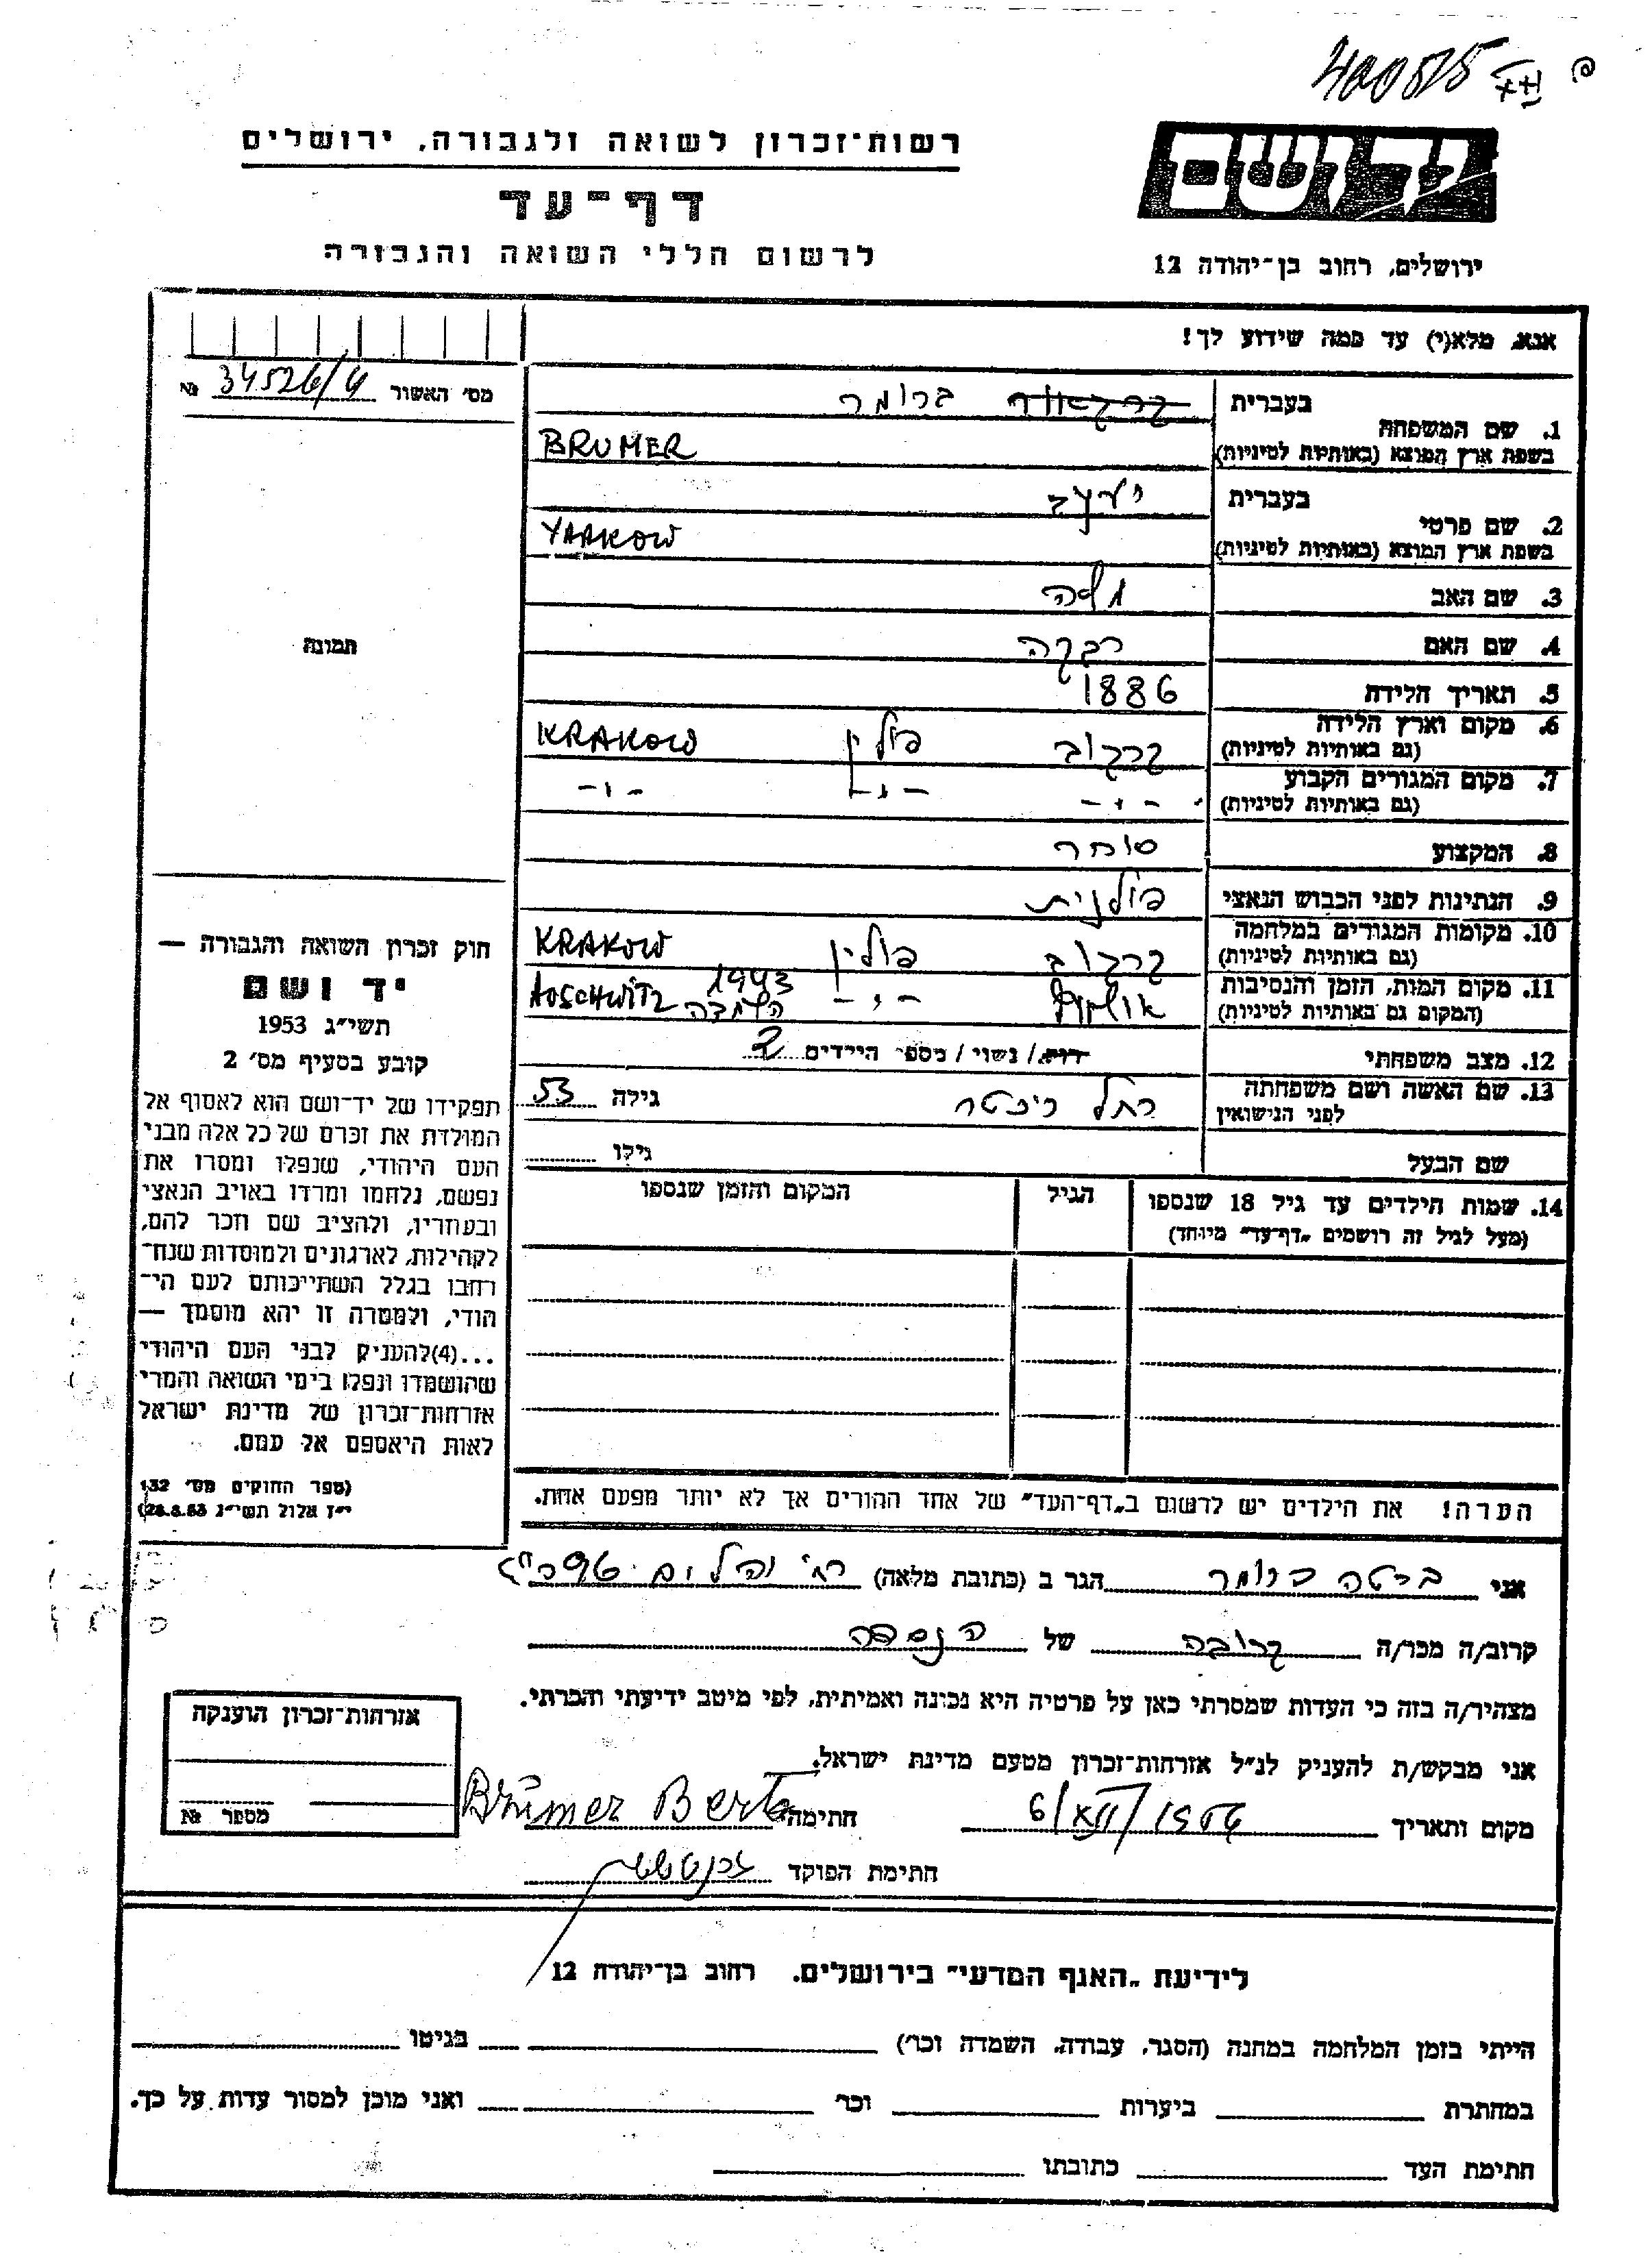 400515
רשות־זכרון לשואה ולגבורה, ירושלים
יד ושם
דף־עד
לרשום חללי השואה והגבורה
ירושלים, רחוב בן־יהודה 12
אנא, מלא(י) עד כמה שידוע לך!
מס׳ האשור № 34526/4
1. שם המשפחה
בעברית ברומר
בשפת ארץ המוצא (באותיות לטיניות) BRUMER
2. שם פרטי
בעברית יעקב
בשפת ארץ המוצא (באותיות לטיניות) YAAKOW
3. שם האב משה
4. שם האם רבקה
5. תאריך הלידה 1886
6. מקום וארץ הלידה (גם באותיות לטיניות) קרקוב פולין KRAKOW
7. מקום המגורים הקבוע (גם באותיות לטיניות) -"- -"- -"-
8. המקצוע סוחר
9. הנתינות לפני הכבוש הנאצי פולנית
10. מקומות המגורים במלחמה (גם באותיות לטיניות) קרקוב פולין KRAKOW
11. מקום המות, הזמן והנסיבות (המקום גם באותיות לטיניות) אושוויץ -"- 1943 השמדה AUSCHWITZ
12. מצב משפחתי רווק/ נשוי/ מספר הילדים 2
13. שם האשה ושם משפחתה לפני הנישואין רחל ריכטר גילה 53
שם הבעל גילו
14. שמות הילדים עד גיל 18 שנספו (מעל לגיל זה רושמים „דף־עד” מיוחד) הגיל המקום והזמן שנספו
הערה! את הילדים יש לרשום ב„דף־העד” של אחד ההורים אך לא יותר מפעם אחת.
תמונה
חוק זכרון השואה והגבורה —
יד ושם
תשי״ג 1953
קובע בסעיף מס׳ 2
תפקידו של יד־ושם הוא לאסוף אל
המולדת את זכרם של כל אלה מבני
העם היהודי, שנפלו ומסרו את
נפשם, נלחמו ומרדו באויב הנאצי
ובעוזריו, ולהציב שם וזכר להם,
לקהילות, לארגונים ולמוסדות שנח־
רבו בגלל השתייכותם לעם הי־
הודי, ולמטרה זו יהא מוסמך —
...(4)להעניק לבני העם היהודי
שהושמדו ונפלו בימי השואה והמרי
אזרחות־זכרון של מדינת ישראל
לאות היאספם אל עמם.
(ספר החוקים מס׳ 132
י״ז אלול תשי״ג 28.8.53)
אני ברטה ברומר הגר ב (כתובת מלאה)
קרוב/ה מכר/ה קרובה של הנספה
מצהיר/ה בזה כי העדות שמסרתי כאן על פרטיה היא נכונה ואמיתית, לפי מיטב ידיעתי והכרתי.
אני מבקש/ת להעניק לנ״ל אזרחות־זכרון מטעם מדינת ישראל.
מקום ותאריך 6/XII/1956 חתימה Brümer Berta
חתימת הפוקד
אזרחות־זכרון הוענקה
מספר №
לידיעת „האגף המדעי” בירושלים. רחוב בן־יהודה 12
הייתי בזמן המלחמה במחנה (הסגר, עבודה, השמדה וכו׳) בגיטו
במחתרת ביערות וכו׳ ואני מוכן למסור עדות על כך.
חתימת העד כתובתו